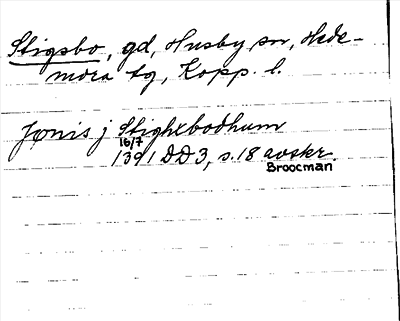 Stigsbo, gd, Husby sn, Hede-
mora tg, Kopp. l.
Jønis j Stighxbodhum
16/7
1391 DD3, s. 18 avskr.
Broocman